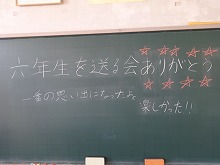 六年生を送る会ありがとう
一番の思い出になったよ
楽しかった!!